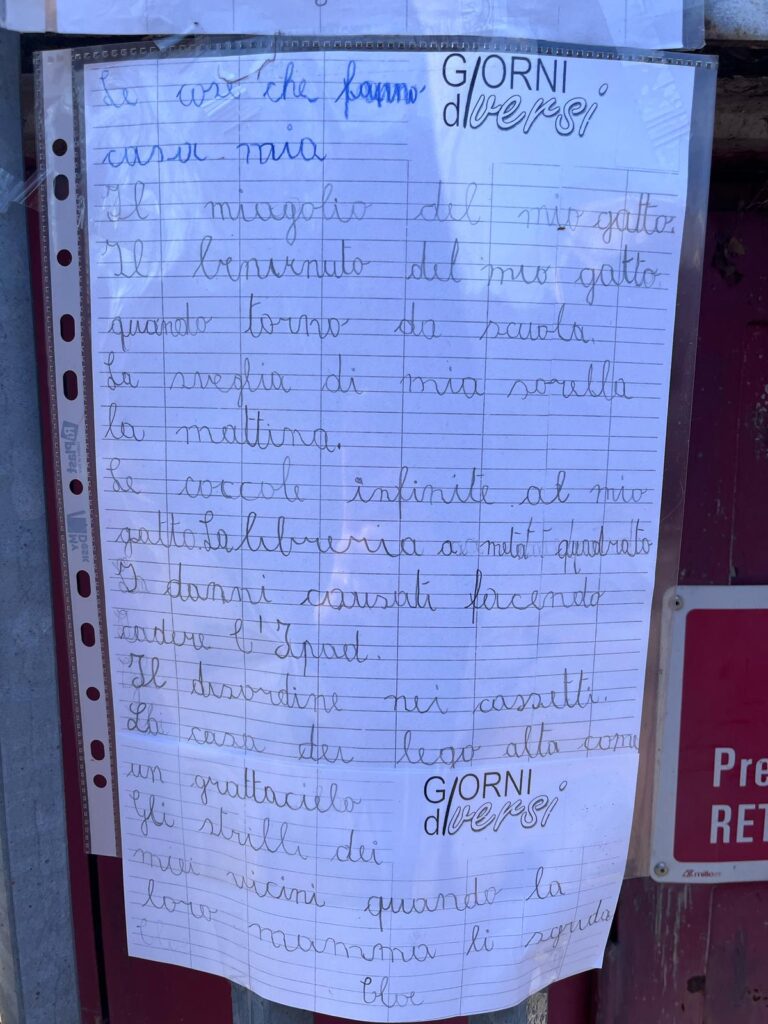 Le cose che fanno
casa mia
GIORNI
diversi
Il miagolio del mio gatto.
Il benvenuto del mio gatto
quando torno da scuola.
La sveglia di mia sorella
la mattina.
Le coccole infinite al mio
gatto. La libreria a quadrato
I danni causati facendo
cadere l'Ipad.
Il disordine nei cassetti.
La casa dei lego alta come
un grattacielo
GIORNI
diversi
Gli strilli dei
miei vicini quando la
loro mamma li sgrida
RoPlast
Pre
RET